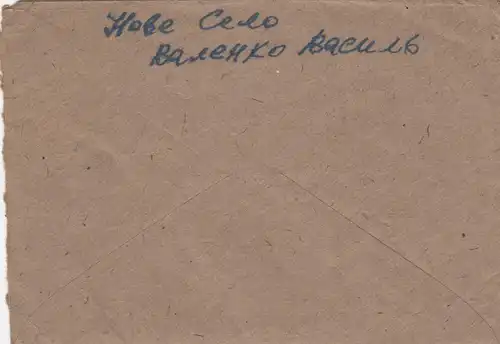 Нове Село
Валенко Василь